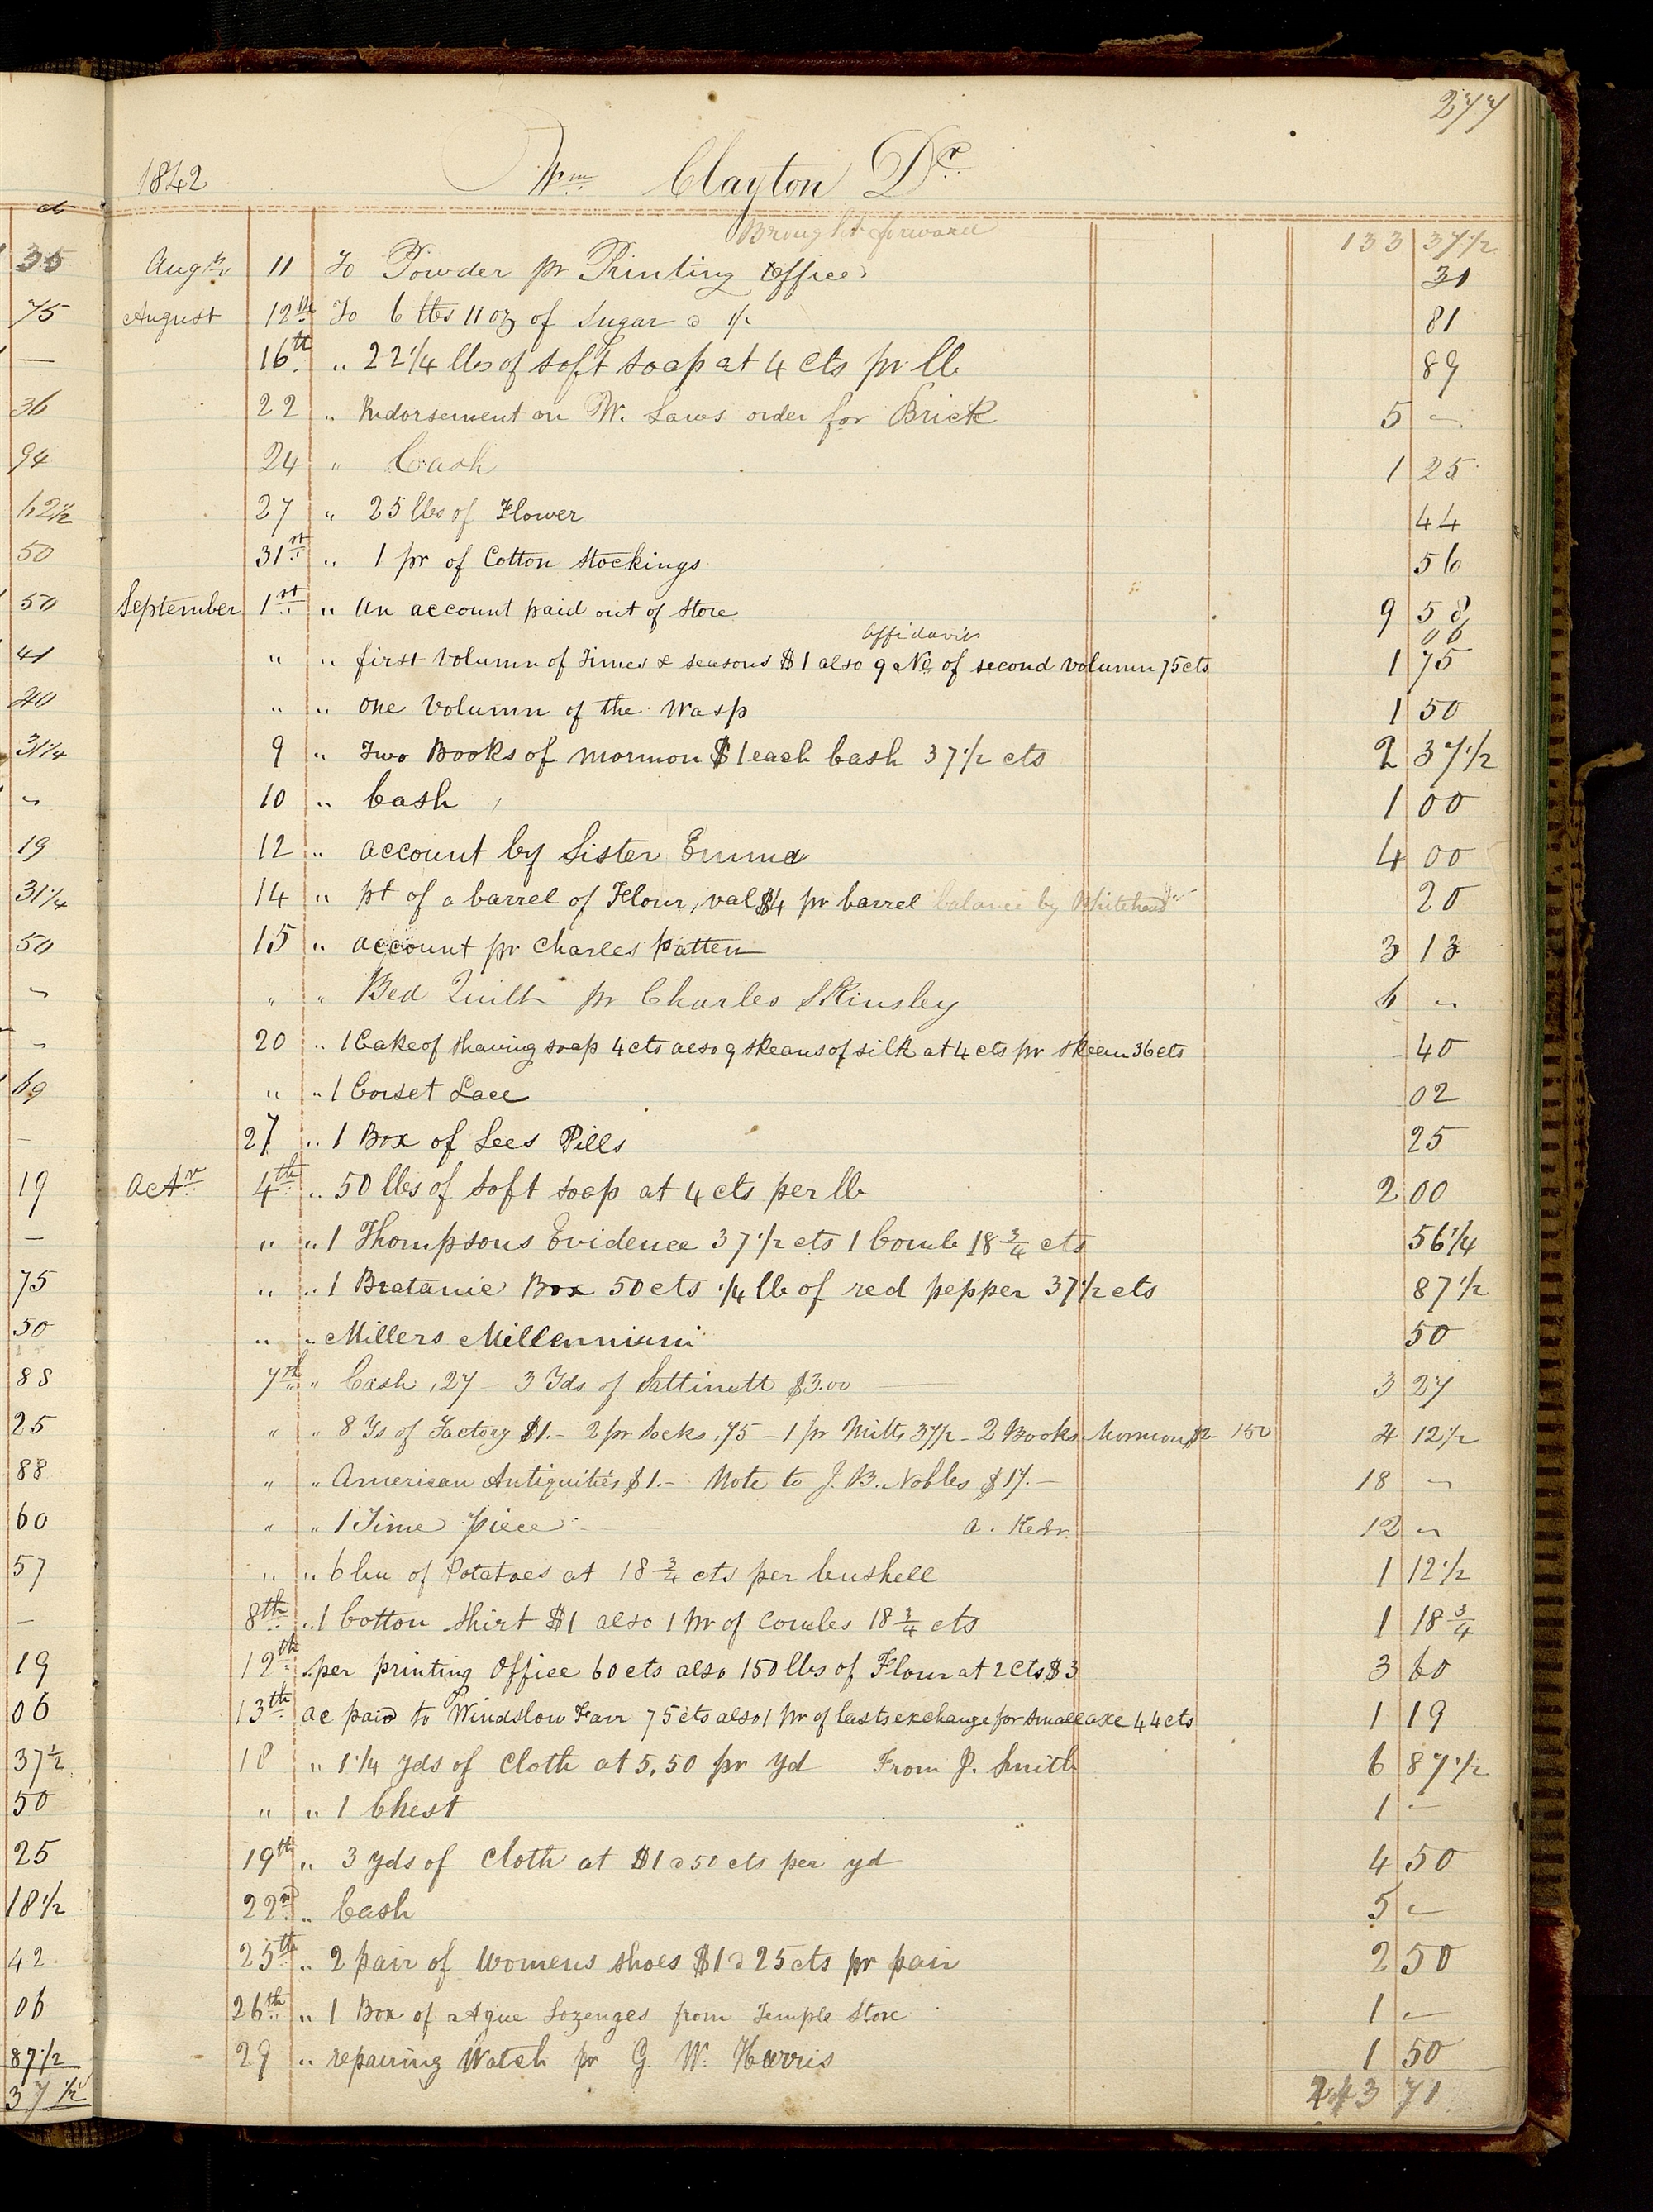 277
1842 Wm Clayton Dr
Brought forward 133 37 1/2
Augt 11 To Powder pr Printing Office 31
August 12th To 6 lbs 11 oz of Sugar 81
16th " 22 1/4 lbs of soft soap at 4 cts pr lb 89
22 " Indorsement on W. Laws order for Brick 5 —
24 " Cash 1 25
27 " 25 lbs of Flower 44
31st " 1 pr of Cotton Stockings 56
September 1st " An account paid out of Store 9 58
affidavits 06
" " first Volumn of Times & seasons $1 also 9 No of second volumn 75 cts 1 75
" " One Volumn of the Wasp 1 50
9 " Two Books of mormon $1 each Cash 37 1/2 cts 2 37 1/2
10 " Cash 1 00
12 " account by Sister Emma 4 00
14 " pt of a barrel of Flour, val $4 pr barrel balance by Whitehead 20
15 " account pr Charles Patten 3 13
" " Bed Quilt pr Charles Skinsley 6 —
20 " 1 Cake of shaving soap 4 cts also 9 skeans of silk at 4 cts pr skean 36 cts 40
" " 1 Corset Lace 02
27 " 1 Box of Lees Pills 25
Octr 4th " 50 lbs of soft soap at 4 cts per lb 2 00
" " 1 Thompsons Evidence 37 1/2 cts 1 Comb 18 3/4 cts 56 1/4
" " 1 Bratanie Box 50 cts 1/4 lb of red pepper 37 1/2 cts 87 1/2
" " Millers Millennium 50
7th " Cash ,27 — 3 Yds of Sattinett $3.00 — 3 27
" " 8 Ys of Factory $1.— 2 pr Socks ,75 — 1 pr Mitts 37 1/2 — 2 Books Mormon $2 — 150 4 12 1/2
" " American Antiquities $1.— Note to J. B. Nobles $17.— 18 —
" " 1 Time piece — 12 —
" " 6 bu of Potatoes at 18 3/4 cts per bushell 1 12 1/2
8th " 1 Cotton Shirt $1 also 1 pr of combs 18 3/4 cts 1 18 3/4
12th " per printing Office 60 cts also 150 lbs of Flour at 2 cts $3 3 60
13th ac paid to Windslow Farr 75 cts also 1 pr of lasts exchange for small axe 44 cts 1 19
18 " 1 1/4 yds of Cloth at 5,50 pr yd From J. Smith 6 87 1/2
" " 1 Chest 1 —
19th " 3 yds of Cloth at $1 50 cts per yd 4 50
22nd " Cash 5 —
25th " 2 pair of Womens shoes $1 25 cts pr pair 2 50
26th " 1 Box of Ague Lozenges from Temple Store 1 —
29 " repairing Watch pr G. W. Harris 1 50
243 71
cts
35
75
—
36
94
62 1/2
50
50
41
40
31 1/4
"
19
31 1/4
50
"
"
69
—
19
—
75
50
88
25
88
60
57
—
19
06
37 1/2
50
25
18 1/2
42
06
87 1/2
37 1/2